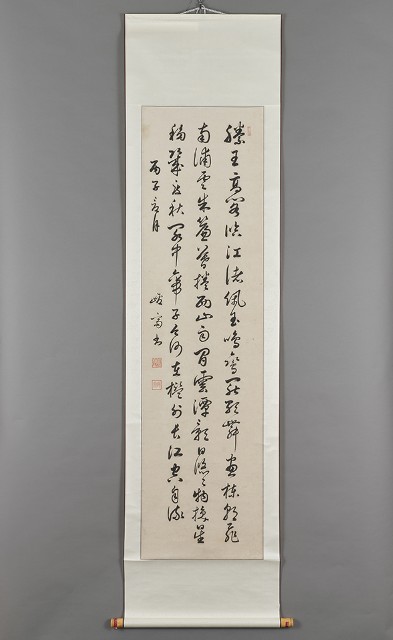 滕王高閣臨江渚佩玉鳴鸞罷歌舞畫棟朝飛
南浦雲朱簾暮捲西山雨閒雲潭影日悠々物換星
移幾度秋閣中帝子今何在檻外長江空自流
丙子 月 書